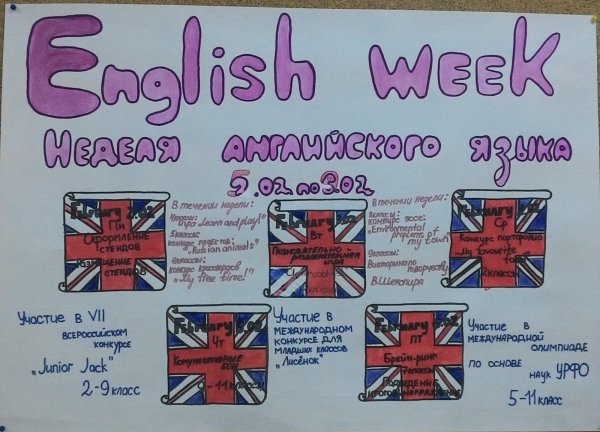 English WEEK
НЕДЕЛЯ АНГЛИЙСКОГО ЯЗЫКА
5.02 по 9.02
February 5.02
Пн
Оформление
стендов
стендов
В течении недели:
игра "Learn and play!"
конкурс
конкурс кроссвордов
"My free time!"
February
Вт
Познавательно-
развлекательная
игра
В течении недели:
конкурс эссе:
"Environmental
problems of
my town"
Викторина по
творчеству
В.Шекспира
February
Ср
Конкурс портфолио
"My favourite
классы
Участие в VII
всероссийском
конкурсе
"Junior Jack"
2-9 класс
February
Чт
Коммуникативные
бои
9-11 классы
Участие в
международном
конкурсе для
младших классов
"Лисёнок"
February
пт
Брейн-ринг
7 классы
Подведение
итогов, награждение
Участие в
международной
олимпиаде
по основе
наук УРФО
5-11 класс